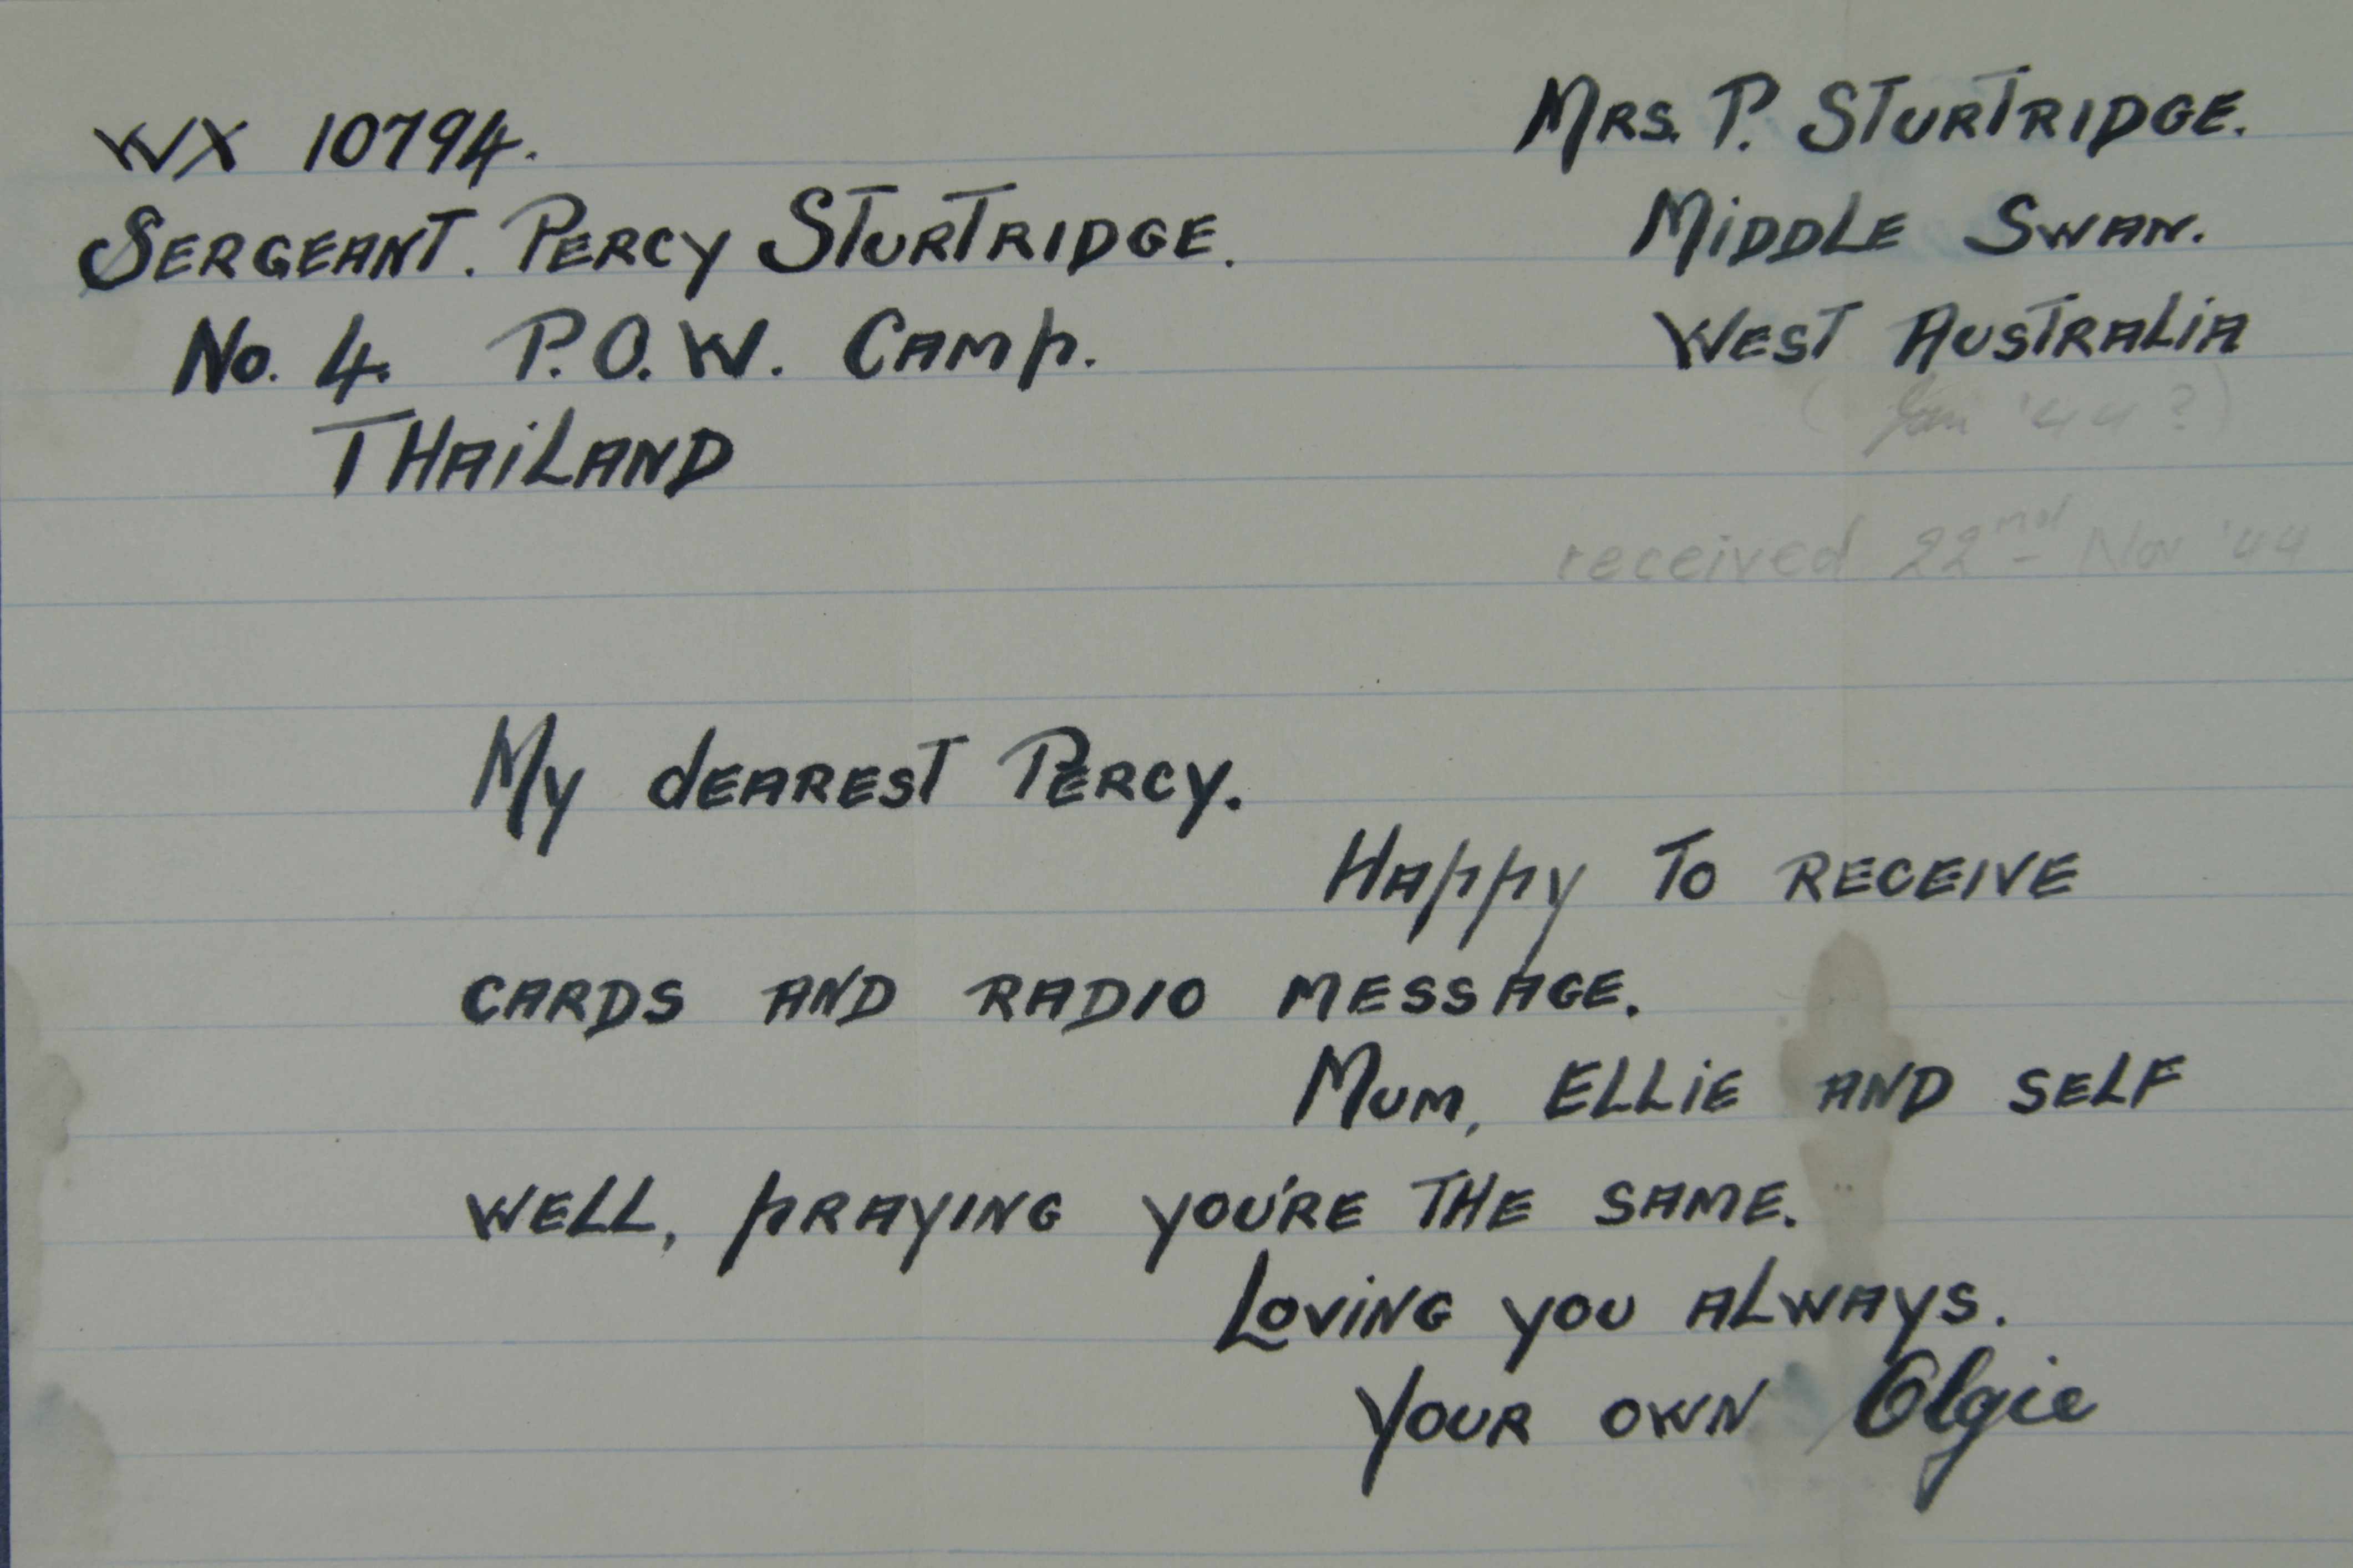 WX 10794.
SERGEANT. PERCY STURTRIDGE.
No. 4. P.O.W. CAMP.
THAILAND
MRS. P. STURTRIDGE.
MIDDLE SWAN.
WEST AUSTRALIA
(Jan '44?)
received 22nd Nov '44
My dEAREST PERCY.
HAppy To RECEIVE
CARDS AND RADIO MESSAGE.
MUM, ELLiE AND SELF
WELL, pRAYING YOU'RE THE SAME.
LOVING YOU ALWAYS.
YOUR OWN Olgie